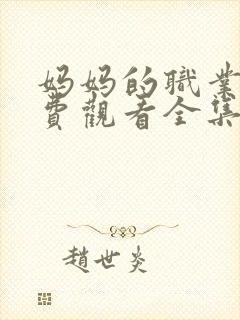 妈妈的職業
費觀看全集
趙世炎